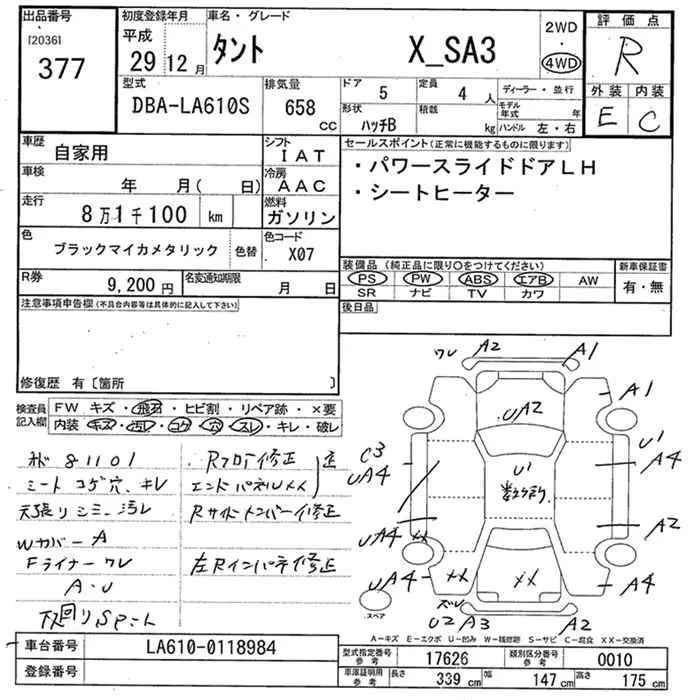 出品番号
[2036]
377
初度登録年月
平成
29年12月
車名・グレード
タント X_SA3
2WD
・
4WD
評価点
R
外装 内装
E C
型式
DBA-LA610S
排気量
658 CC
ドア 5
定員 4 人
形状 ハッチB
積載 kg
ディーラー・並行
モデル年式 年
ハンドル 左・右
車歴
自家用
シフト
IAT
車検
年 月( 日)
冷房
AAC
走行
8万1千100 km
燃料
ガソリン
色
ブラックマイカメタリック
色替
色コード
X07
R券
9,200円
名変通知期限
月 日
セールスポイント(正常に機能するものに限ります)
・パワースライドドアLH
・シートヒーター
装備品(純正品に限り○をつけてください)
PS PW ABS エアB AW
SR ナビ TV カワ
新車保証書
有・無
後日品
注意事項申告欄(不具合内容等は具体的に記入して下さい)
修復歴 有〔箇所 〕
検査員
記入欄
FW キズ・飛石・ヒビ割・リペア跡・×要
内装 キズ・汚レ・コゲ・穴・スレ・キレ・破レ
81101
シート コゲ穴、キレ
天張リシミ、汚レ
Wカバー A
Fライナー ワレ
A・U
下回りSアート
Rフロア修正
エンドパネルXX
Rサイドメンバー修正
左Rインパネ修正
ワレ A2 A1
A1
UA2
C3
UA4
U1
A4
U1
数ヶ所
UA4 XX
A2
UA4
XX
XX
A4
ズレ
U2 A3 A2
スペア
A-キズ E-エクボ U-凹み W-補修跡 S-サビ C-腐食 XX-交換済
車台番号
LA610-0118984
登録番号
型式指定番号
参考
17626
類別区分番号
参考
0010
車庫証明用
参考
長さ 339 cm
幅 147 cm
高さ 175 cm